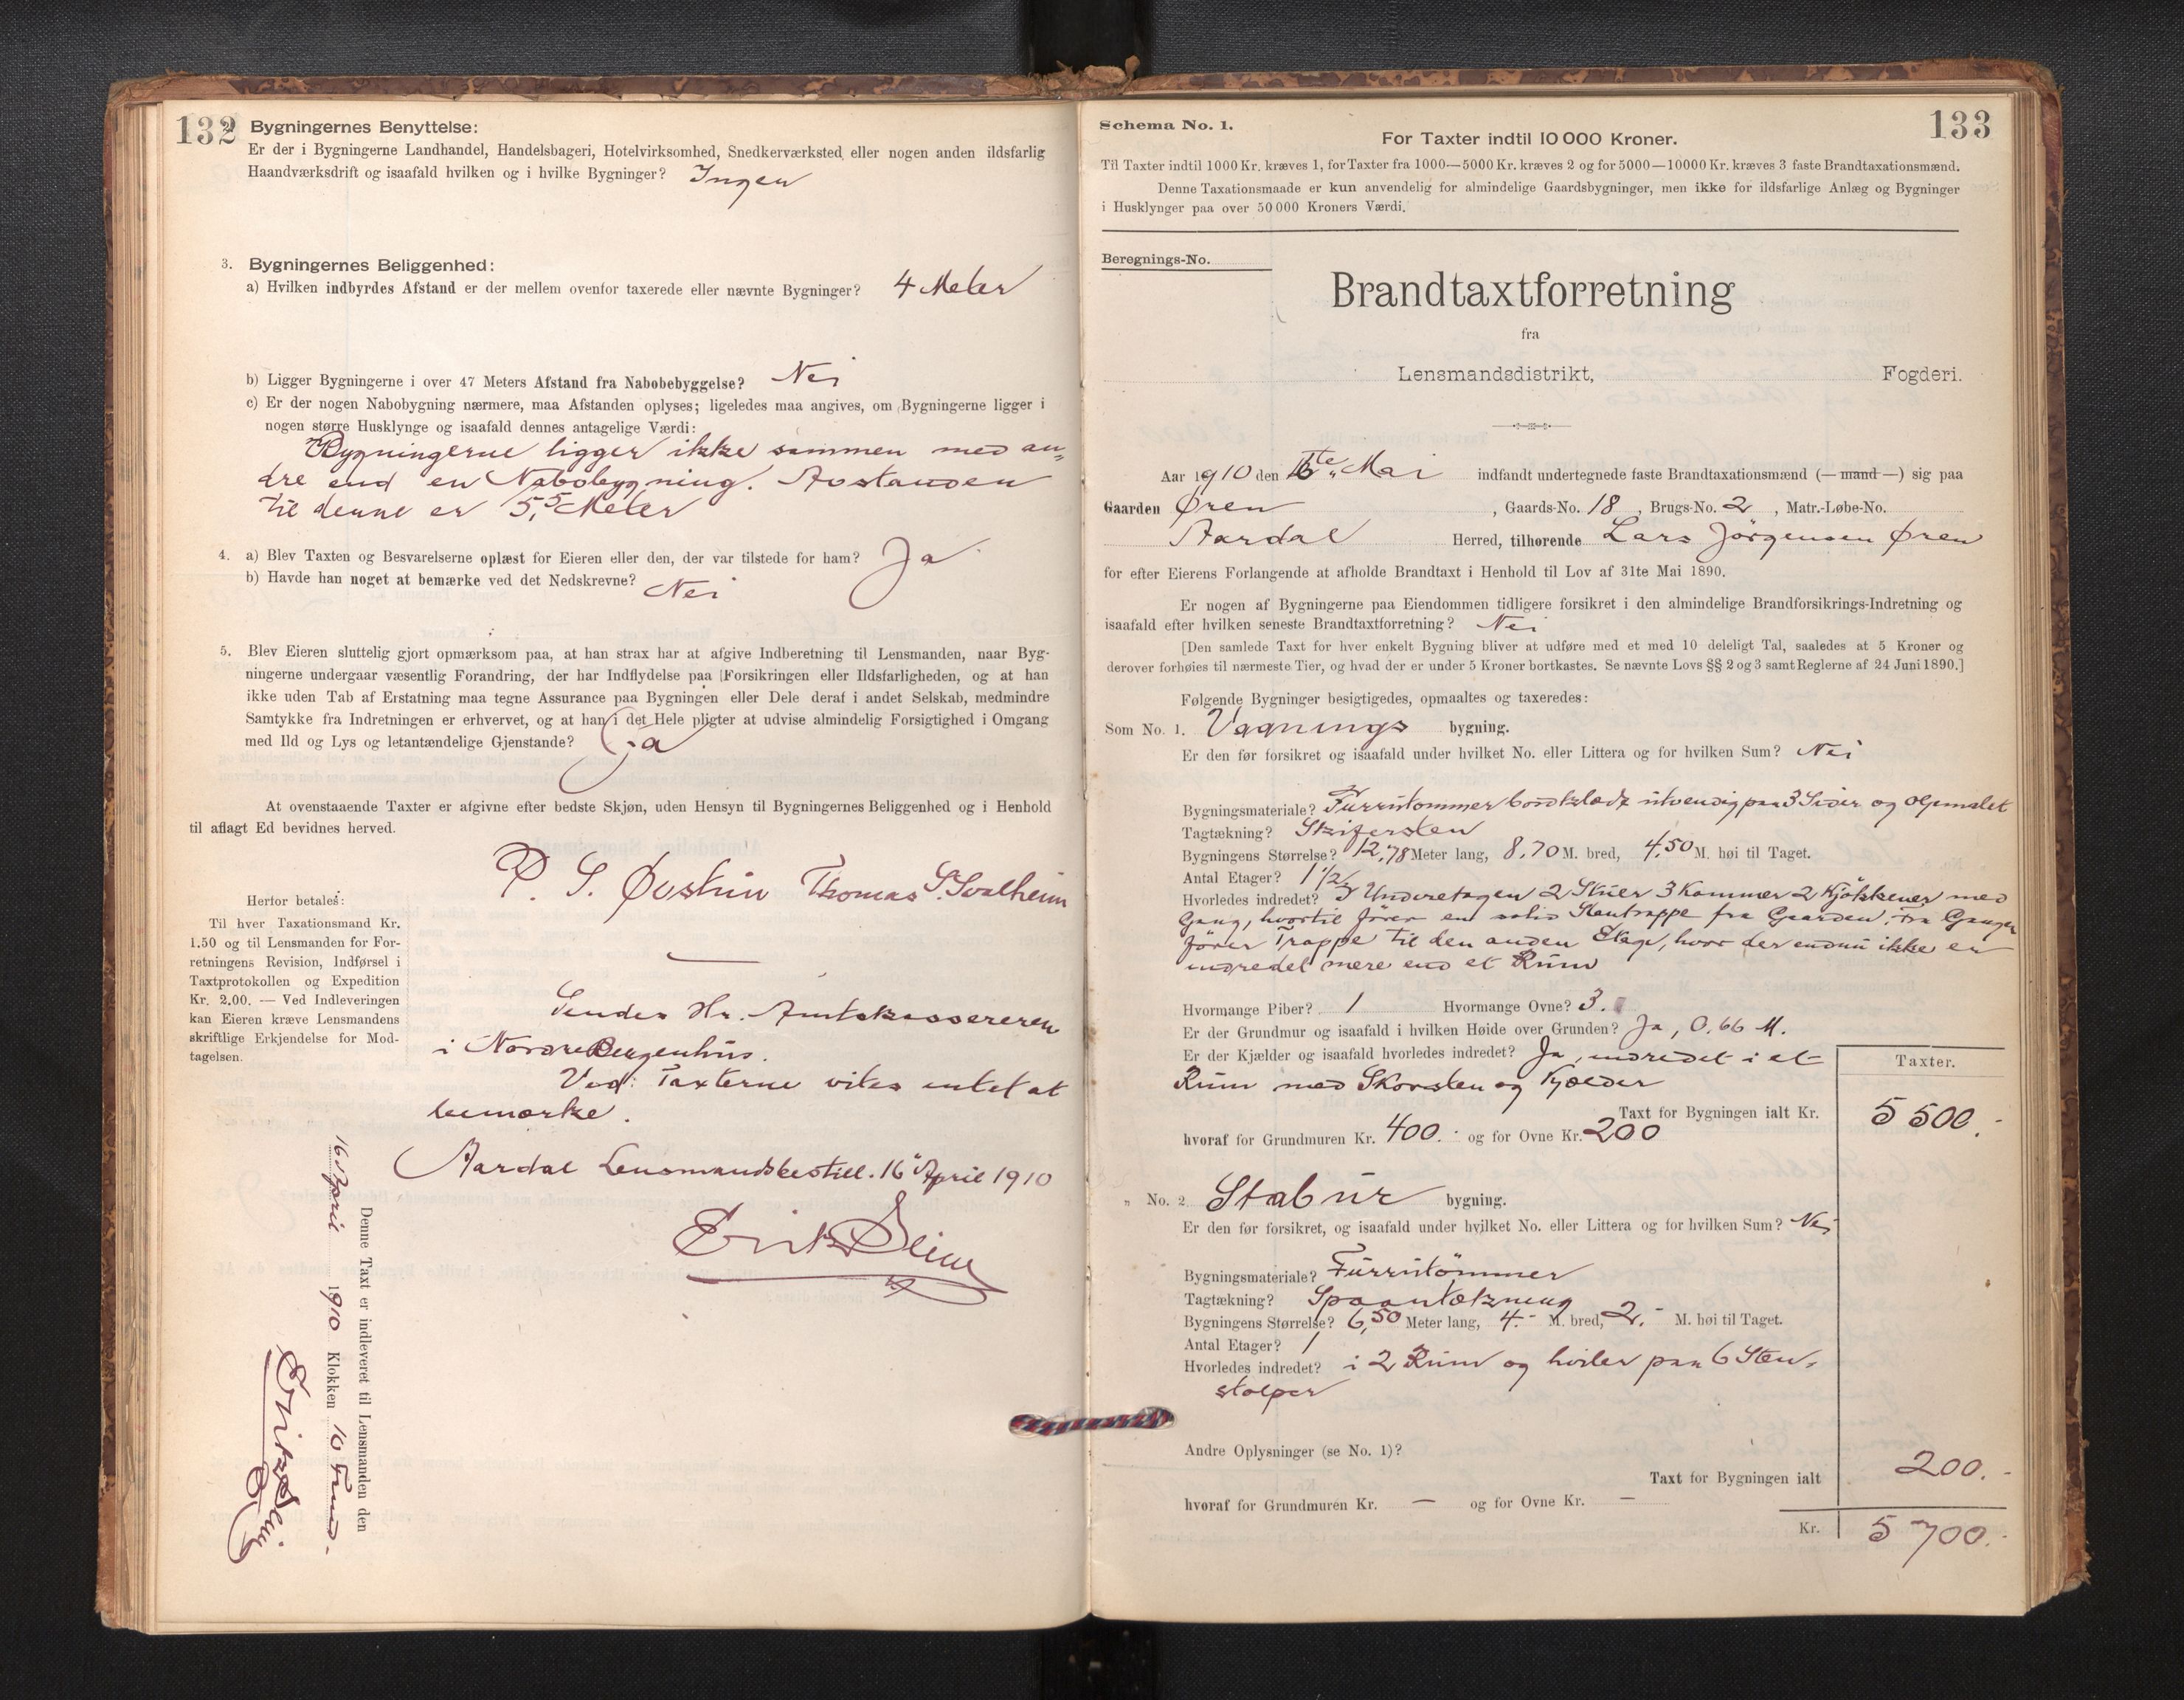 132
Bygningernes Benyttelse:
Er der i Bygningerne Landhandel, Handelsbageri, Hotelvirksomhed, Snedkerværksted eller nogen anden ildsfarlig
Haandværksdrift og isaafald hvilken og i hvilke Bygninger? Ingen
3. Bygningernes Beliggenhed:
a) Hvilken indbyrdes Afstand er der mellem ovenfor taxerede eller nævnte Bygninger? 4 Meter
b) Ligger Bygningerne i over 47 Meters Afstand fra Nabobebyggelse? Nei
c) Er der nogen Nabobygning nærmere, maa Afstanden oplyses; ligeledes maa angives, om Bygningerne ligger i
nogen større Husklynge og isaafald dennes antagelige Værdi:
Bygningerne ligger ikke sammen med an-
dre end en Nabobygning. Avstanden
til denne er 5,5 Meter
4. a) Blev Taxten og Besvarelserne oplæst for Eieren eller den, der var tilstede for ham? Ja
b) Havde han noget at bemærke ved det Nedskrevne? Nei
5. Blev Eieren sluttelig gjort opmærksom paa, at han strax har at afgive Indberetning til Lensmanden, naar Byg-
ningerne undergaar væsentlig Forandring, der har Indflydelse paa Forsikringen eller Ildsfarligheden, og at han
ikke uden Tab af Erstatning maa tegne Assurance paa Bygningen eller Dele deraf i andet Selskab, medmindre
Samtykke fra Indretningen er erhvervet, og at han i det Hele pligter at udvise almindelig Forsigtighed i Omgang
med Ild og Lys og letantændelige Gjenstande? Ja
At ovenstaaende Taxter er afgivne efter bedste Skjøn, uden Hensyn til Bygningernes Beliggenhed og i Henhold
til aflagt Ed bevidnes herved.
P. S. Øvstun Thomas S. Svalheim
Herfor betales:
Til hver Taxationsmand Kr.
1.50 og til Lensmanden for For-
retningens Revision, Indførsel i
Taxtprotokollen og Expedition
Kr. 2.00. — Ved Indleveringen
kan Eieren kræve Lensmandens
skriftlige Erkjendelse for Mod-
tagelsen.
Sendes Hr. Amtskassereren
i Nordre Bergenhus.
Ved Taxterne vites intet at
bemærke.
Aardal Lensmandsbestill. 16 April 1910
Erik Slinde
Denne Taxt er indleveret til Lensmanden den
16 April 1910 Klokken 10 Form.
Erik Slinde
133
Schema No. 1.
For Taxter indtil 10 000 Kroner.
Til Taxter indtil 1000 Kr. kræves 1, for Taxter fra 1000—5000 Kr. kræves 2 og for 5000—10000 Kr. kræves 3 faste Brandtaxationsmænd.
Denne Taxationsmaade er kun anvendelig for almindelige Gaardsbygninger, men ikke for ildsfarlige Anlæg og Bygninger
i Husklynger paa over 50 000 Kroners Værdi.
Beregnings-No.
Brandtaxtforretning
fra
Lensmandsdistrikt, Fogderi.
Aar 1910 den te Mai indfandt undertegnede faste Brandtaxationsmænd (— mand —) sig paa
Gaarden Øren, Gaards-No. 18, Brugs-No. 2, Matr.-Løbe-No.
Aardal Herred, tilhørende Lars Jörgensen Øren
for efter Eierens Forlangende at afholde Brandtaxt i Henhold til Lov af 31te Mai 1890.
Er nogen af Bygningerne paa Eiendommen tidligere forsikret i den almindelige Brandforsikrings-Indretning og
isaafald efter hvilken seneste Brandtaxtforretning? Nei
[Den samlede Taxt for hver enkelt Bygning bliver at udføre med et med 10 deleligt Tal, saaledes at 5 Kroner og
derover forhøies til nærmeste Tier, og hvad der er under 5 Kroner bortkastes. Se nævnte Lovs §§ 2 og 3 samt Reglerne af 24 Juni 1890.]
Følgende Bygninger besigtigedes, opmaaltes og taxeredes:
Som No. 1. Vaanings bygning.
Er den før forsikret og isaafald under hvilket No. eller Littera og for hvilken Sum? Nei
Bygningsmateriale? Furrutømmer bordklædt utvendig paa 3 Sider og oljemalet
Tagtækning? Skifersten
Bygningens Størrelse? 12,78 Meter lang, 8,70 M. bred, 4,50 M. høi til Taget.
Antal Etager? 1 1/2
Hvorledes indredet? I Underetagen 2 Stuer 3 Kammer 2 Kjøkkener med
Gang, hvortil fører en solid Stentrappe fra Gaarden. Fra Gangen
fører Trappe til den anden Etage, hvor der endnu ikke er
indredet mere end et Rum
Hvormange Piber? 1 Hvormange Ovne? 3.
Er der Grundmur og isaafald i hvilken Høide over Grunden? Ja, 0.66 M.
Er der Kjælder og isaafald hvorledes indredet? Ja, indredet i et
Rum med Skorsten og Kjælder
Taxter.
Taxt for Bygningen ialt Kr. 5500.-
hvoraf for Grundmuren Kr. 400.- og for Ovne Kr. 200
„ No. 2 Stabur bygning.
Er den før forsikret, og isaafald under hvilket No. eller Littera og for hvilken Sum? Nei
Bygningsmateriale? Furrutömmer
Tagtækning? Spaantækning
Bygningens Størrelse? 6,50 Meter lang, 4.- M. bred, 2.- M. høi til Taget.
Antal Etager? 1
Hvorledes indredet? i 2 Rum og hviler paa 6 Sten-
stolper
Andre Oplysninger (se No. 1)?
Taxt for Bygningen ialt 200.-
hvoraf for Grundmuren Kr. — og for Ovne Kr. —
Kr. 5700.-